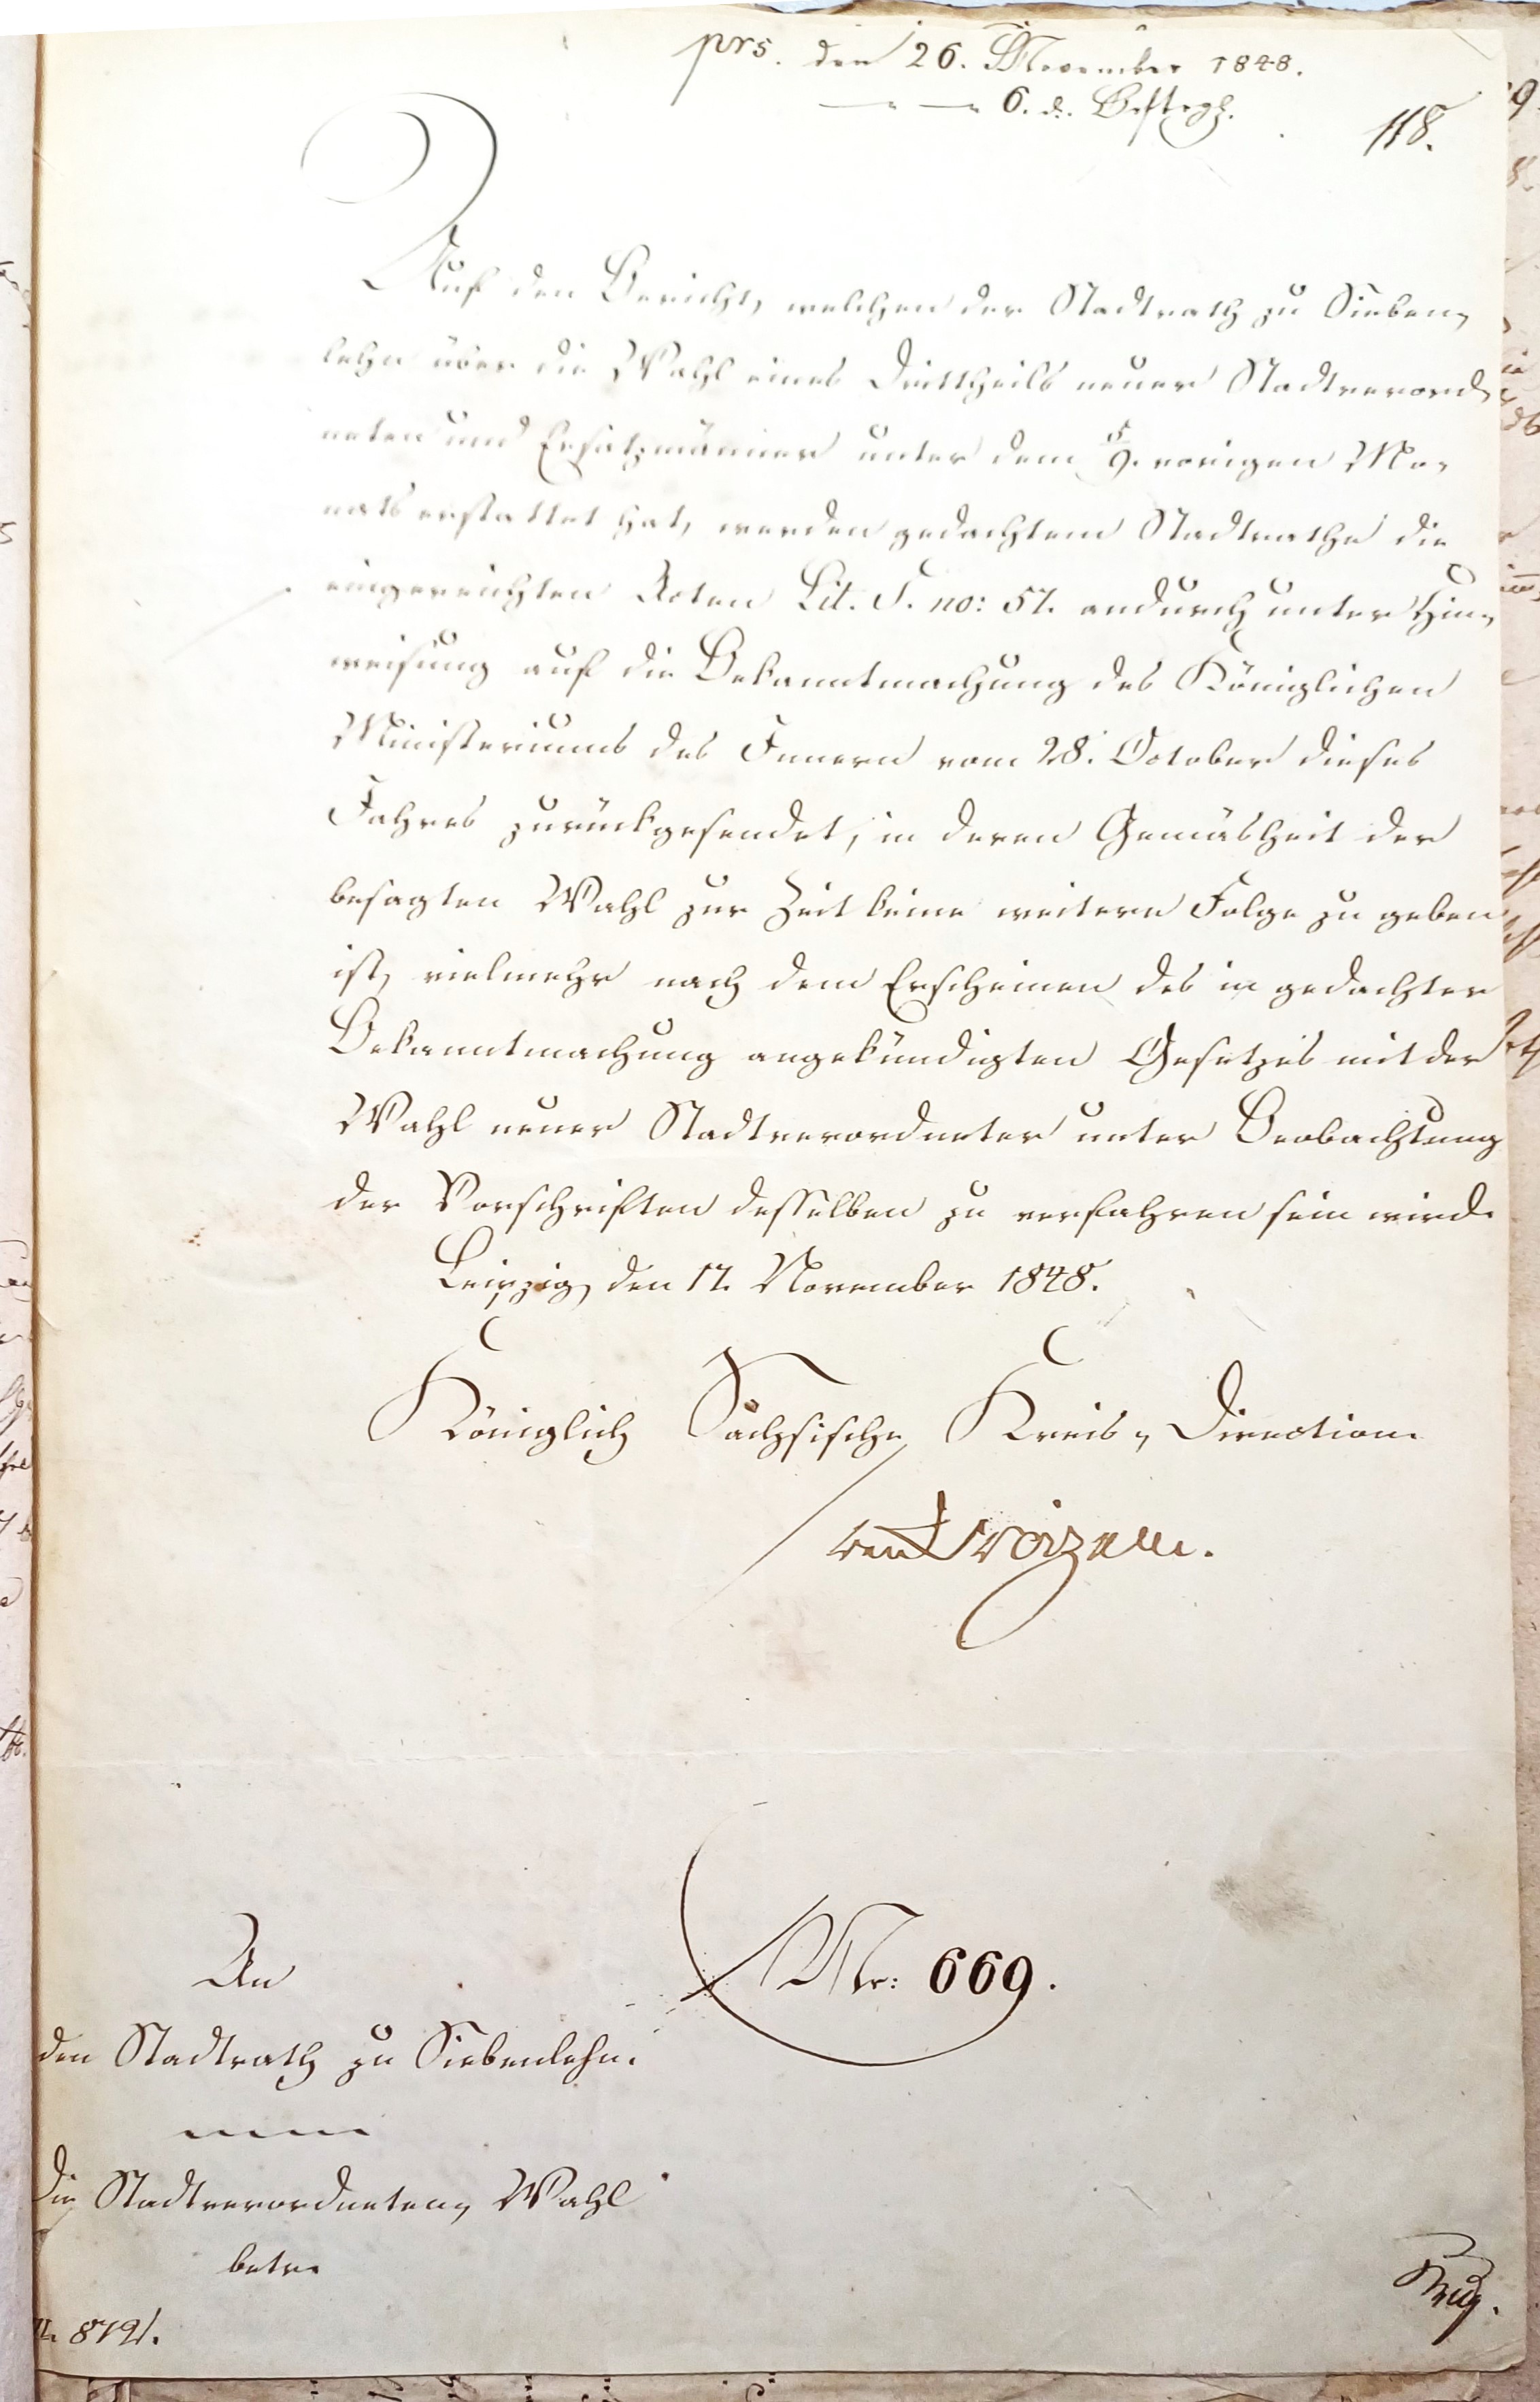 prs. den 26. November 1848.
6. d.
118.
Auf den Bericht, welchen der Stadtrath zu Sieben-
lehn über die Wahl eines Drittheils neuer Stadtverord-
neten und Ersatzmänner unter dem 5/9. vorigen Mo-
nats erstattet hat, werden gedachtem Stadtrathe die
eingereichten Acten Lit. S. no: 57. andurch unter Hin-
weisung auf die Bekanntmachung des Königlichen
Ministeriums des Innern vom 28. October dieses
Jahres zurückgesendet, in deren Gemäsheit der
besagten Wahl zur Zeit keine weitere Folge zu geben
ist, vielmehr nach dem Erscheinen des in gedachter
Bekanntmachung angekündigten Gesetzes mit der
Wahl neuer Stadtverordneter unter Beobachtung
der Vorschriften desselben zu verfahren sein wird.
Leipzig, den 17. November 1848.
Königlich Sächsische Kreis-Direction.
von Broizem.
Nr: 669.
An
den Stadtrath zu Siebenlehn.
die Stadtverordneten-Wahl
betr.